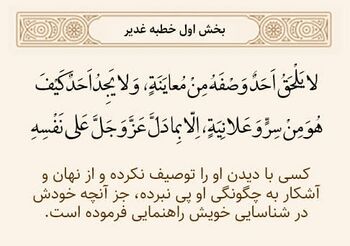 بخش اول خطبه غدیر
لا يَلْحَقُ اَحَدٌ وَصْفَهُ مِنْ مُعايَنَةٍ، وَلا يَجِدُ اَحَدٌ كَيْفَ
هُوَ مِنْ سِرٍّ وَعَلانِيَةٍ، اِلّا بِما دَلَّ عَزَّ وَجَلَّ عَلى نَفْسِهِ
کسی با دیدن او را توصیف نکرده و از نهان و
آشکار به چگونگی او پی نبرده، جز آنچه خودش
در شناسایی خویش راهنمایی فرموده است.